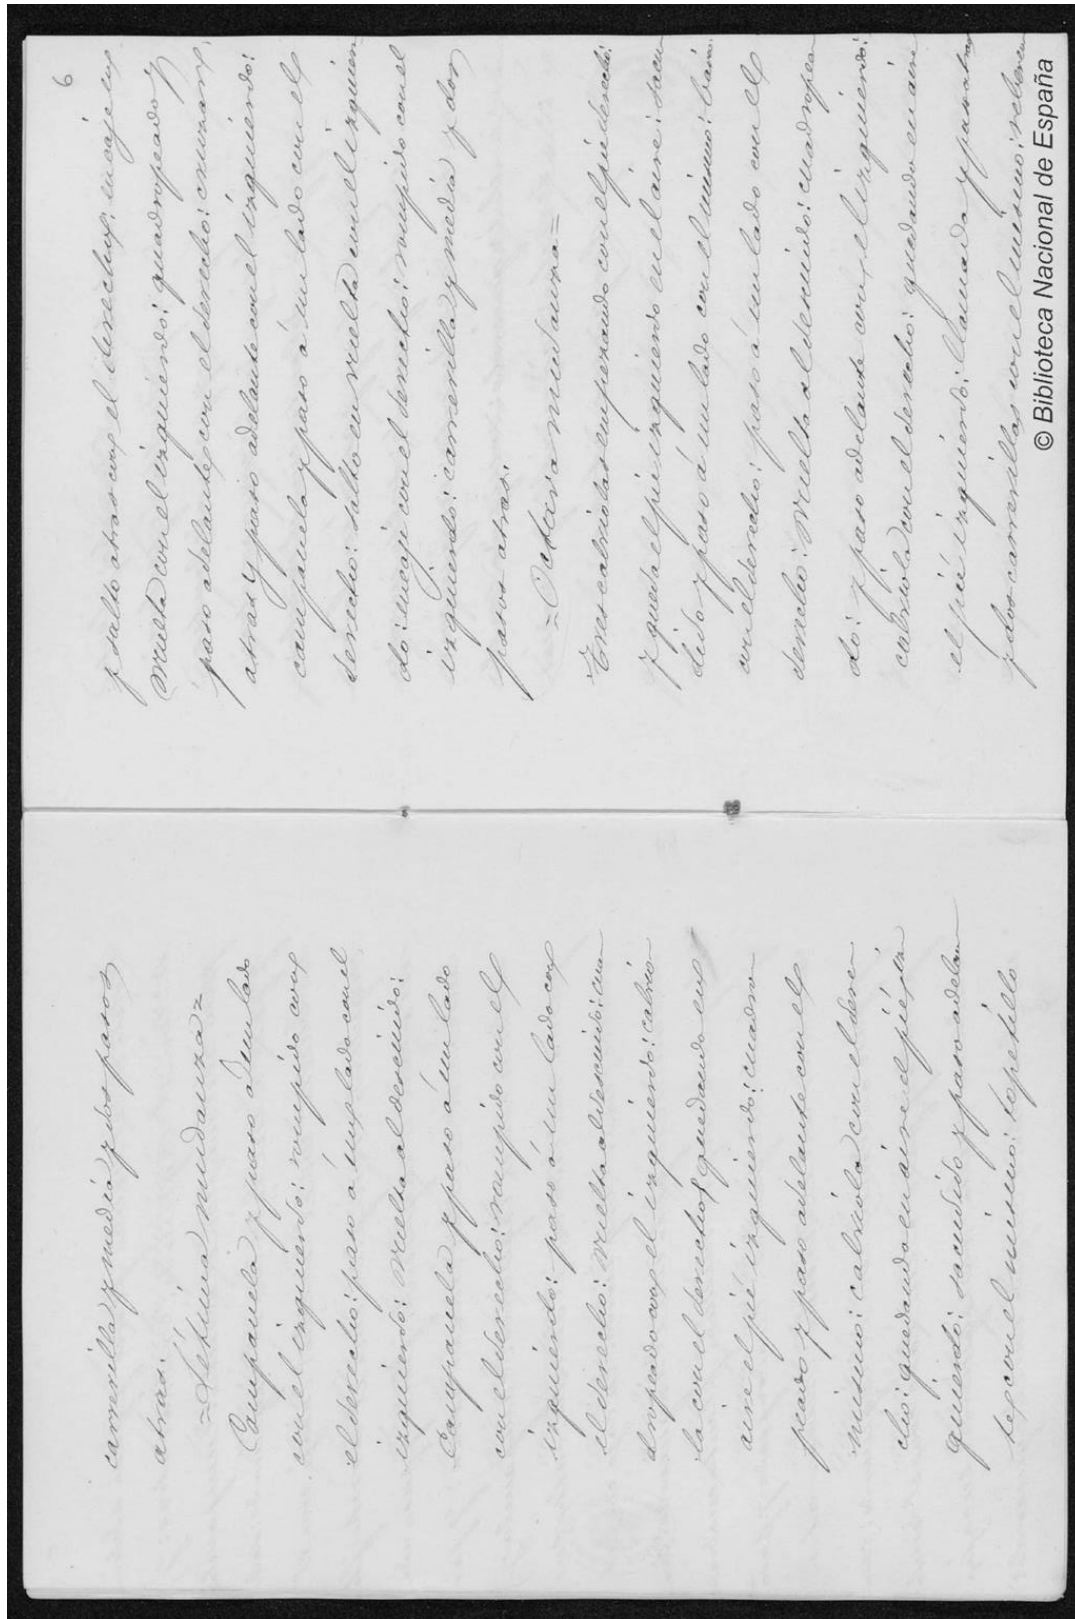 carrerilla y media y dos pasos
atras.
=Setima mudanza=
Campanela y paso a un lado
con el izquierdo: rompido con
el derecho: paso á un lado con el
izquierdo: vuelta al descuido:
Campanela y paso á un lado
con el derecho: rompido con el
izquierdo: paso á un lado con
el derecho: vuelta al descuido: cua
dropeado con el izquierdo: cabrio
la con el derecho y quedando en
aire el pié izquierdo: cuadro
peado y paso adelante con el
mismo: cabriola con el dere
cho: quedando en aire el pié iz
quierdo: sacudido y paso adelan
te con el mismo: topetillo
6
y salto atras con el derecho: encaje en
vuelta con el izquierdo: quadropeado y
paso adelante con el derecho: cruzar
atras y paso adelante con el izquierdo:
campanela y paso a un lado con el
derecho: salto en vuelta con el izquier
do: encaje con el derecho: rompido con el
izquierdo: carrerilla y media y dos
pasos atras.
=Octava mudanza=
Tres cabriolas empezando con el pié derecho:
y queda el pié izquierdo en el aire: sacu
dido y paso á un lado con el mismo:
con el derecho: paso a un lado con el
derecho: vuelta al descuido: cuadropea
do: y paso adelante con el izquierdo:
cabriola con el derecho: quedando en aire
el pié izquierdo: llamada y para atras
y dos carrerillas con el mismo:
© Biblioteca Nacional de España